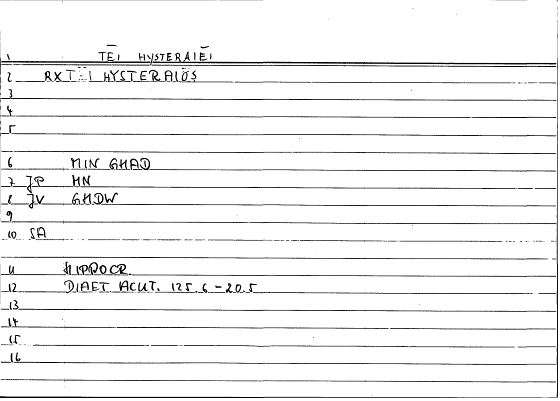 1 TĒI HYSTERAIĒI
2 RXTĒI HYSTERAIŌS
3
4
5
6 MIN GHAD
7 JP HN
8 JV GHDW
9
10 SA
11 HIPPOCR
12 DIAET ACUT. 125.6-20.5
13
14
15
16